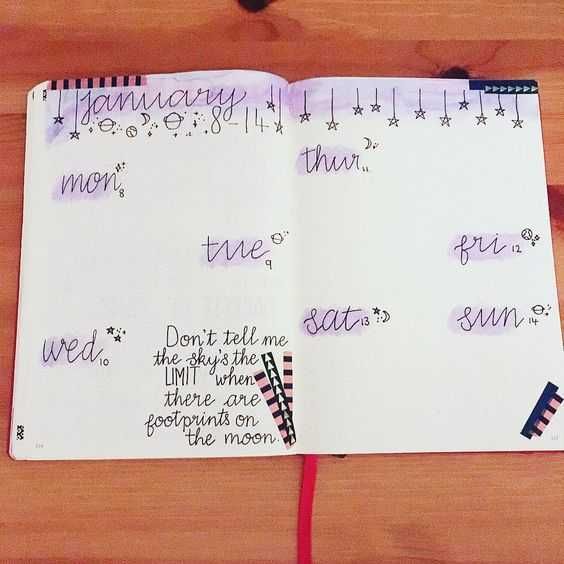 january
8-14
mon 8
tue 9
wed 10
Don't tell me
the sky's the
LIMIT when
there are
footprints on
the moon.
thur 11
fri 12
sat 13
sun 14